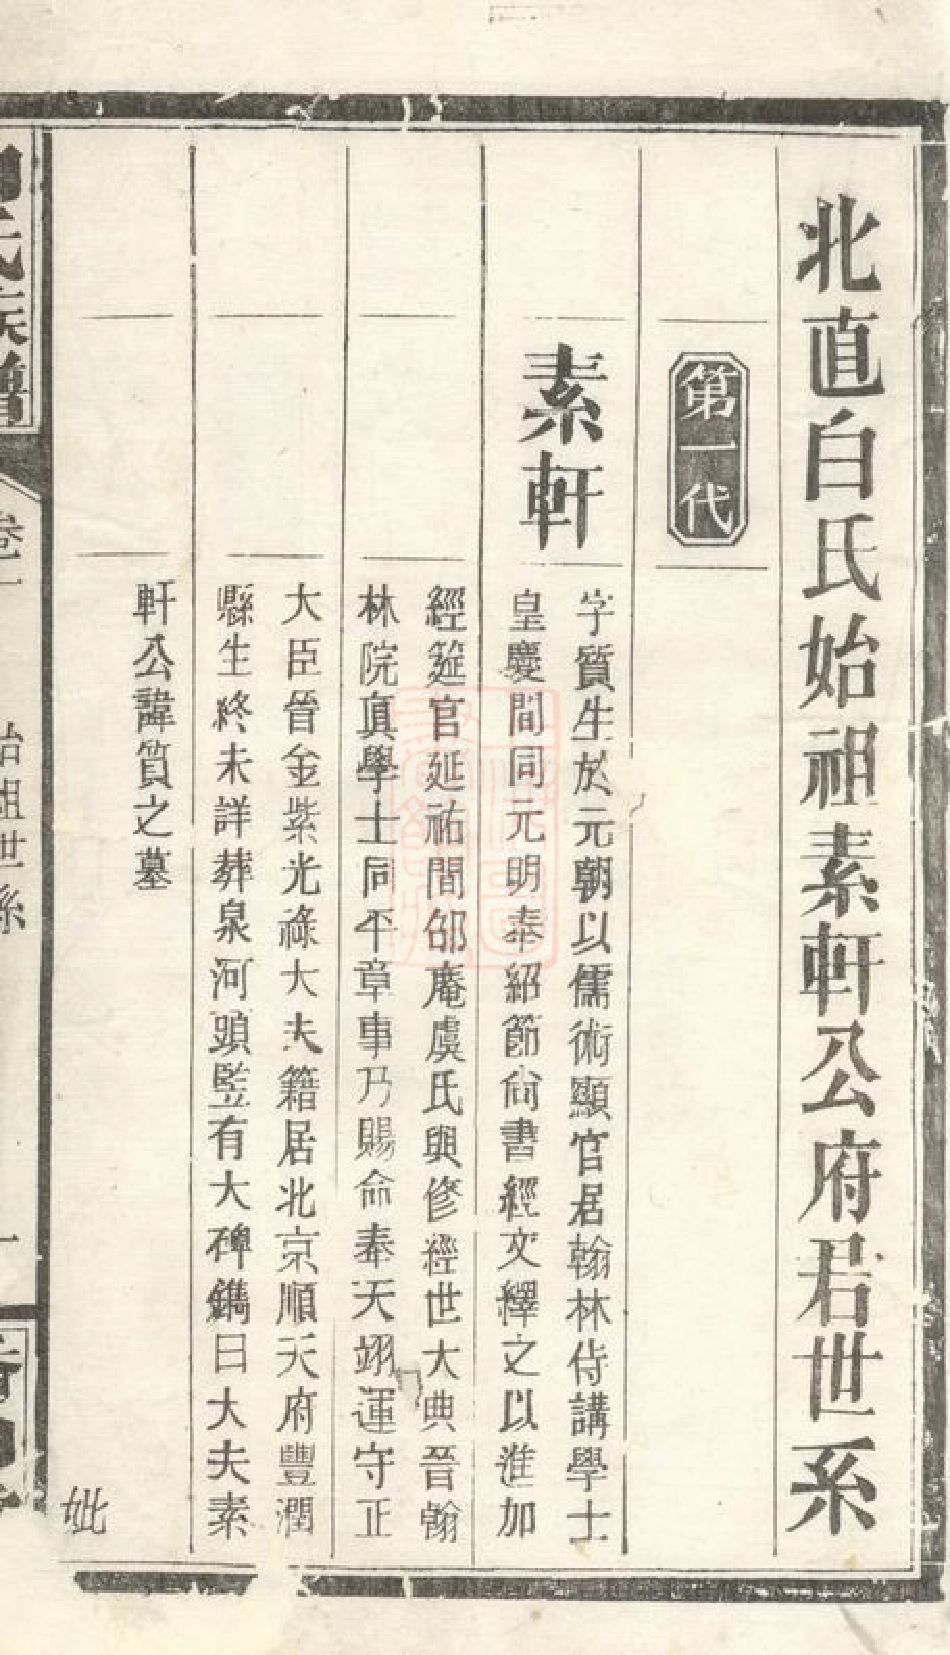 北直白氏始祖素軒公府君世系
第一代
素軒
字質生於元朝以儒術顯官居翰林侍講學士
皇慶間同元明奉紹節尙書經文繹之以進加
經筵官延祐間邵庵虞氏與修經世大典晉翰
林院真學士同平章事乃賜命奉天翊運守正
大臣晉金紫光祿大夫籍居北京順天府豐潤
縣生終未詳葬泉河頭監有大碑鐫曰大夫素
軒公諱質之墓
妣
白氏族譜
卷一
始祖世系
一